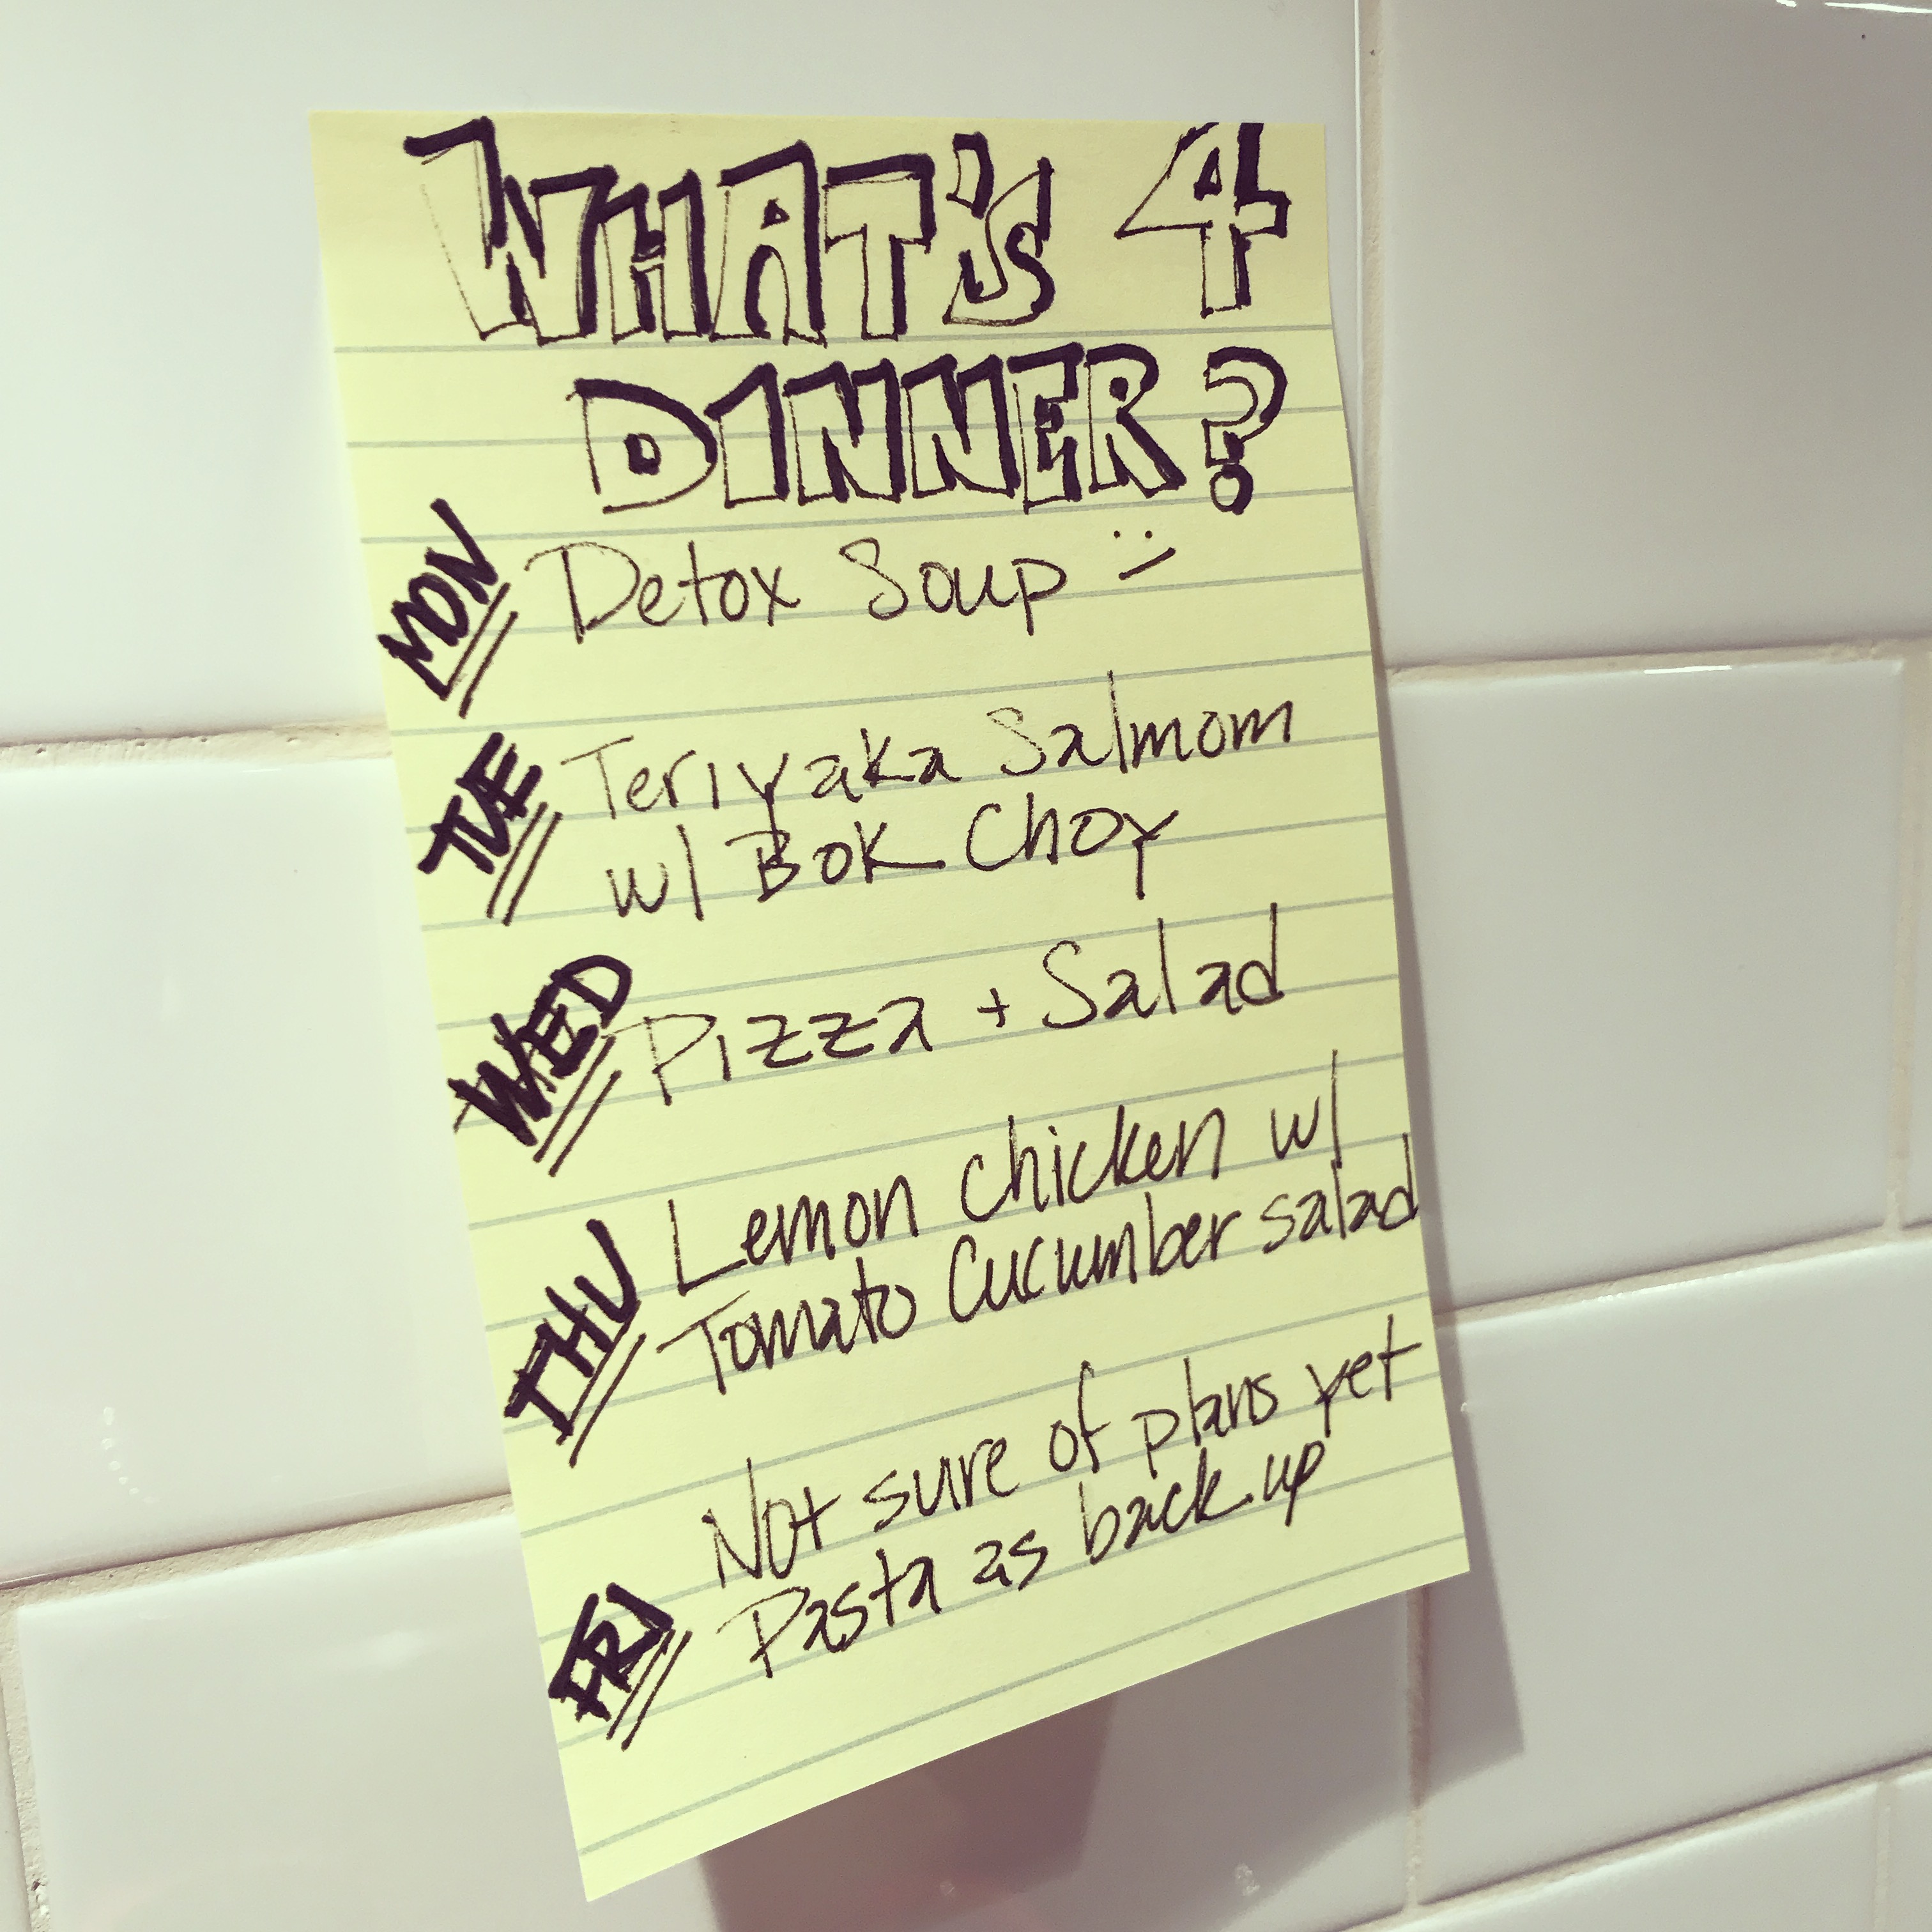 WHAT'S 4
DINNER?
MON Detox Soup :-)
TUE Teriyaka Salmom
w/ Bok Choy
WED Pizza + Salad
THU Lemon chicken w/
Tomato Cucumber salad
FRI Not sure of plans yet
Pasta as back up